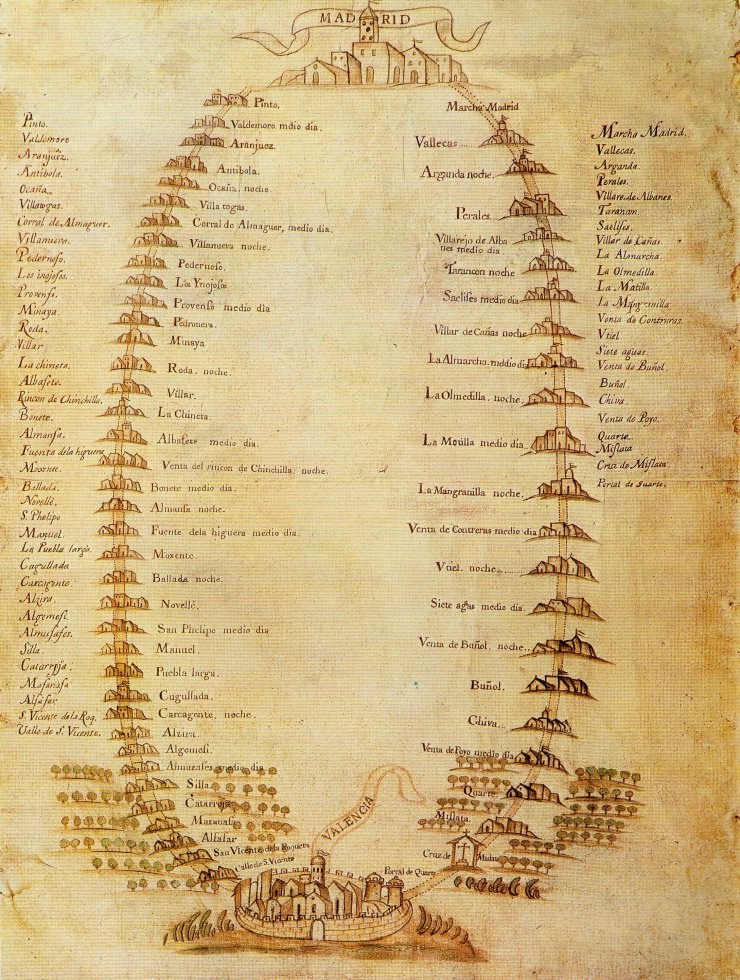 MADRID
Pinto.
Valdemoro
Aranjuez.
Antibola.
Ocaña.
Villatogas.
Corral de Almaguer.
Villanueva.
Pedernoso.
Los inojosos.
Provenso.
Minaya.
Roda.
Villar.
La chineta.
Albasete.
Rincon de Chinchilla.
Bonete.
Almansa.
Fuente dela higuera
Moxente.
Ballada.
Novellè.
S. Phelipo
Manuel.
La Puebla larga.
Cugullada
Carcagente.
Alzira.
Algemesi.
Almusafes.
Silla.
Catarroja.
Masanasa
Alfafar.
S. Vicente de la Roq.
Calle de S. Vicente.
Pinto.
Valdemoro mdio dia.
Aranjuez.
Antibola.
Ocaña, noche.
Villa togas.
Corral de Almaguer, medio dia.
Villanueva noche.
Pedernoso.
Los Ynojosos
Provenso medio dia
Pedronera.
Minaya
Roda. noche.
Villar.
La Chineta
Albasete medio dia.
Venta del rincon de Chinchilla. noche.
Bonete medio dia.
Almansa noche.
Fuente dela higuera medio dia.
Moxente.
Ballada noche.
Novellè.
San Phelipe medio dia
Manuel.
Puebla larga.
Cugullada.
Carcagente, noche.
Alzira.
Algemesi.
Almuzafes medio dia
Silla.
Catarroja
Maxanasa
Alfafar
San Vicente dela Roqueta
Calle de S. Vicente
VALENCIA
Marcha Madrid
Vallecas.....
Arganda noche.
Perales.
Villarejo de Alba
nes medio dia
Tarancon noche
Saelises medio dia
Villar de Cañas noche
La Almarcha. medio dia
La Olmedilla. noche.
La Motilla medio dia.
La Mangranilla noche.
Venta de Contreras medio dia
Vtiel. noche.......
Siete agas medio dia.
Venta de Buñol. noche..
Buñol.
Chiva..
Venta de Poyo medio dia
Quarte.
Mislata.
Cruz de Mislata
Portal de Quarte
Marcha Madrid.
Vallecas.
Arganda.
Perales.
Villare. de Albanes.
Tarancon
Saelises.
Villar de Cañas.
La Almarcha.
La Olmedilla.
La Matilla.
La Mangranilla
Venta de Contreras.
Vtiel
Siete aguas.
Venta de Buñol.
Buñol.
Chiva.
Venta de Poyo.
Quarte.
Mislata
Cruz de Mislata.
Portal de Quarte.